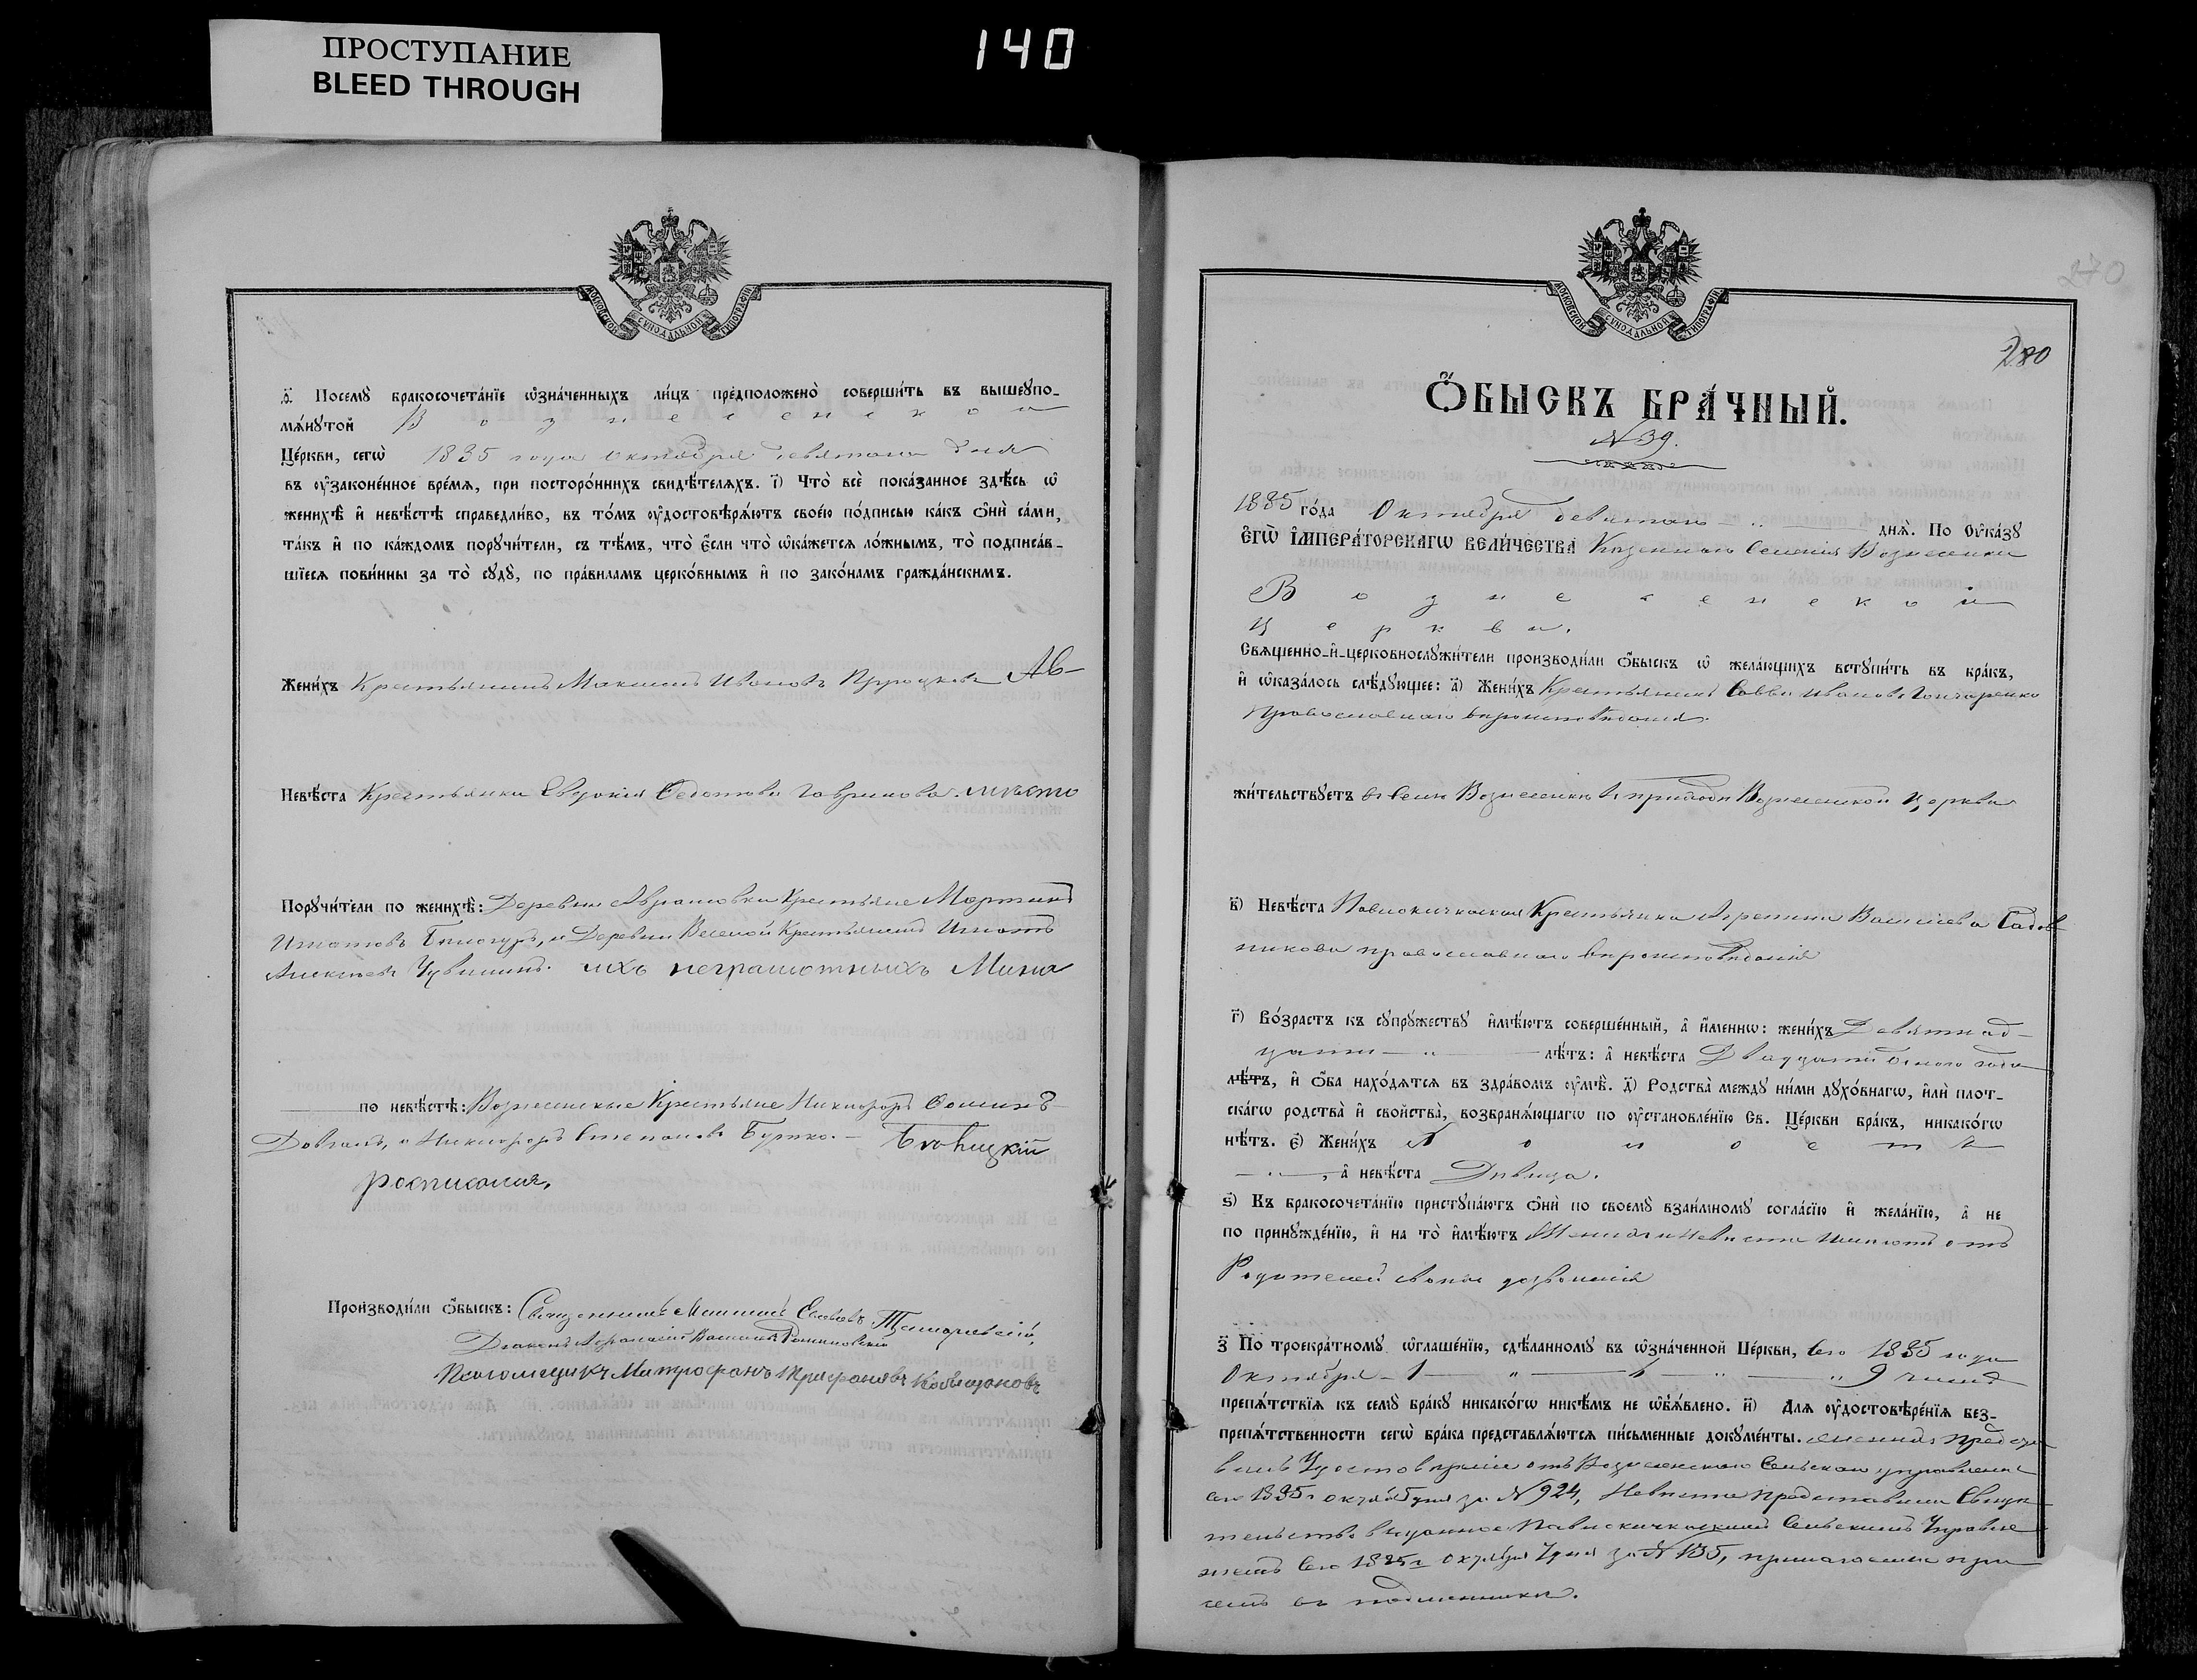 ПРОСТУПАНИЕ
BLEED THROUGH
140
МОСКОВСКОЙ СѴНОДАЛЬНОЙ ТИПОГРАФІИ
Посемꙋ бракосочетáнїе ѡ҆значенныхъ ли́цъ предположенò соверши́ть въ вышеꙋпо-
мѧ́нꙋтой Вознесенской
Це́ркви, сегѡ̀ 1885 года октября девятаго дня
въ ᲂу҆законе́нное вре́мѧ, при посторо́ннихъ свидѣ́телѧхъ. і҃) Что̀ всѐ пока́занное здѣ́сь ѡ҆
женихѣ̀ и҆ невѣ́стѣ справедли́во, въ то́мъ ᲂу҆достовѣрѧ́ютъ свое́ю по́дписью ка́къ ѻ҆нѝ са́ми,
та́къ и҆ по ка́ждомъ порꙋчи́тели, съ тѣ́мъ, что̀ є҆́сли что̀ ѡ҆ка́жетсѧ ло́жнымъ, то̀ подписа́в-
шїесѧ пови́нны за то̀ сꙋдꙋ̀, по пра́виламъ церко́внымъ и҆ по зако́намъ гражда́нскимъ.
Жени́хъ Крестьянинъ Максимъ Ивановъ Ав-
Невѣ́ста Крестьянка Евдокия Федотова Гаврилова. место
Порꙋчи́тели по женихѣ̀: Деревни Аврамовки Крестьяне Мартинъ
Игнатовъ и Деревни Веселой Крестьянинъ Игнатъ
Алексеевъ ихъ неграмотныхъ Мина
по невѣ́стѣ: Вознесенские Крестьяне Никифоръ Фоминъ
Довгаль, и Никифоръ Степановъ Бутко. —
росписался.
Производи́ли ѻ҆́быскъ: Священникъ
Диаконъ Афанасий Василиевъ Романовский
Псаломщикъ Митрофанъ Трифановъ
МОСКОВСКОЙ СѴНОДАЛЬНОЙ ТИПОГРАФІИ
270
280
Ѻ҆́БЫСКЪ БРА́ЧНЫЙ.
№ 39.
1885 го́да Октября девятаго днѧ̀. По ᲂу҆ка́зꙋ
є҆гѡ̀ і҆мпера́торскагѡ вели́чества Казенного Селения Вознесенки
Вознесенской
Церкви.
Свѧще́нно-и҆-церковнослꙋжи́тели производи́ли ѻ҆́быскъ ѡ҆ жела́ющихъ встꙋпи́ть въ бра́къ,
и҆ ѡ҆каза́лось слѣ́дꙋющее: а҃) Жени́хъ Крестьянинъ Савва Ивановъ Гончаренко
православнаго вероисповедания.
жи́тельствꙋетъ въ селе Вознесенке въ приходе Вознесенской церкви
в҃) Невѣ́ста Павлокичкаская Крестьянка Агрепина Василиева Садов
никова православнаго вероисповедания
г҃) Во́зрастъ къ сꙋпрꙋ́жествꙋ и҆мѣ́ютъ соверше́нный, а҆ и҆́меннѡ: жени́хъ Девятнад-
цати — лѣ́тъ: а҆ невѣ́ста Двадцати одного года
лѣ́тъ, и҆ ѻ҆́ба нахо́дѧтсѧ въ здра́вомъ ᲂу҆мѣ̀. д҃) Родства̀ междꙋ ни́ми дꙋхо́внагѡ, и҆лѝ плот-
ска́гѡ родства̀ и҆ сво́йства, возбранѧ́ющагѡ по ᲂу҆становле́нїю Св. Це́ркви бра́къ, никако́гѡ
нѣ́тъ. є҃) Жени́хъ Холостъ
, а҆ невѣ́ста Девица.
ѕ҃) Къ бракосочета́нїю пристꙋпа́ютъ ѻ҆нѝ по своемꙋ̀ взаи́мномꙋ согла́сїю и҆ жела́нїю, а҆ не
по принꙋжде́нїю, и҆ на то̀ и҆мѣ́ютъ Жених и Невеста имеютъ отъ
Родителей своихъ дозволения
з҃ По троекра́тномꙋ ѡ҆глаше́нїю, сдѣ́ланномꙋ въ ѡ҆значенной Це́ркви, Сего 1885 года
Октября — 1 — " — 6 — " — 9 чиселъ
препѧ́тствїѧ къ семꙋ̀ бра́кꙋ никако́гѡ никѣ́мъ не ѡ҆б̾ѧ́влено. и҃) Длѧ ᲂу҆достовѣре́нїѧ без-
препѧ́тственности сегѡ̀ бра́ка представлѧ́ютсѧ пи́сьменные докꙋме́нты. жених предста
вилъ Удостоверение отъ Вознесенскаго Сельскаго управления
сего 1885 г октября за № 924, Невеста представила Свиде
тельство выданное Павлокичкаскимъ Сельскимъ Управле
ниемъ Сего 1885 г Октября 7 дня за № 135, прилагаемые при
семъ въ подлиннике.